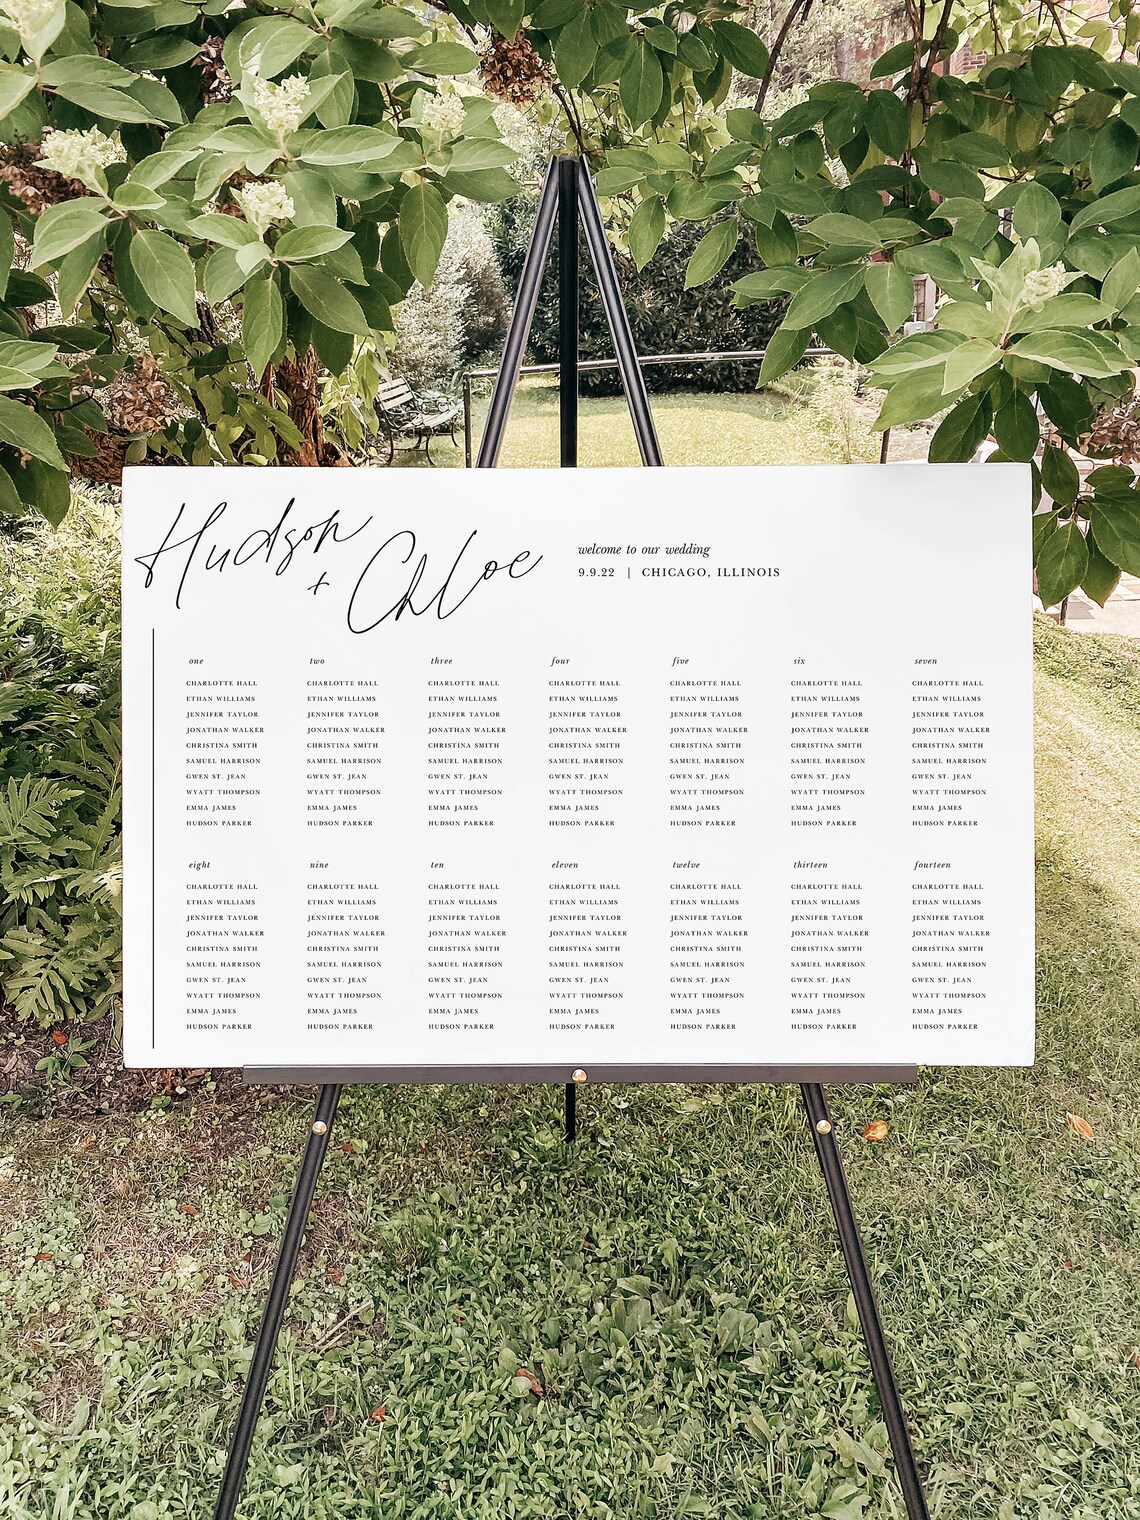 Hudson
+ Chloe
welcome to our wedding
9.9.22 | CHICAGO, ILLINOIS
one
CHARLOTTE HALL
ETHAN WILLIAMS
JENNIFER TAYLOR
JONATHAN WALKER
CHRISTINA SMITH
SAMUEL HARRISON
GWEN ST. JEAN
WYATT THOMPSON
EMMA JAMES
HUDSON PARKER
two
CHARLOTTE HALL
ETHAN WILLIAMS
JENNIFER TAYLOR
JONATHAN WALKER
CHRISTINA SMITH
SAMUEL HARRISON
GWEN ST. JEAN
WYATT THOMPSON
EMMA JAMES
HUDSON PARKER
three
CHARLOTTE HALL
ETHAN WILLIAMS
JENNIFER TAYLOR
JONATHAN WALKER
CHRISTINA SMITH
SAMUEL HARRISON
GWEN ST. JEAN
WYATT THOMPSON
EMMA JAMES
HUDSON PARKER
four
CHARLOTTE HALL
ETHAN WILLIAMS
JENNIFER TAYLOR
JONATHAN WALKER
CHRISTINA SMITH
SAMUEL HARRISON
GWEN ST. JEAN
WYATT THOMPSON
EMMA JAMES
HUDSON PARKER
five
CHARLOTTE HALL
ETHAN WILLIAMS
JENNIFER TAYLOR
JONATHAN WALKER
CHRISTINA SMITH
SAMUEL HARRISON
GWEN ST. JEAN
WYATT THOMPSON
EMMA JAMES
HUDSON PARKER
six
CHARLOTTE HALL
ETHAN WILLIAMS
JENNIFER TAYLOR
JONATHAN WALKER
CHRISTINA SMITH
SAMUEL HARRISON
GWEN ST. JEAN
WYATT THOMPSON
EMMA JAMES
HUDSON PARKER
seven
CHARLOTTE HALL
ETHAN WILLIAMS
JENNIFER TAYLOR
JONATHAN WALKER
CHRISTINA SMITH
SAMUEL HARRISON
GWEN ST. JEAN
WYATT THOMPSON
EMMA JAMES
HUDSON PARKER
eight
CHARLOTTE HALL
ETHAN WILLIAMS
JENNIFER TAYLOR
JONATHAN WALKER
CHRISTINA SMITH
SAMUEL HARRISON
GWEN ST. JEAN
WYATT THOMPSON
EMMA JAMES
HUDSON PARKER
nine
CHARLOTTE HALL
ETHAN WILLIAMS
JENNIFER TAYLOR
JONATHAN WALKER
CHRISTINA SMITH
SAMUEL HARRISON
GWEN ST. JEAN
WYATT THOMPSON
EMMA JAMES
HUDSON PARKER
ten
CHARLOTTE HALL
ETHAN WILLIAMS
JENNIFER TAYLOR
JONATHAN WALKER
CHRISTINA SMITH
SAMUEL HARRISON
GWEN ST. JEAN
WYATT THOMPSON
EMMA JAMES
HUDSON PARKER
eleven
CHARLOTTE HALL
ETHAN WILLIAMS
JENNIFER TAYLOR
JONATHAN WALKER
CHRISTINA SMITH
SAMUEL HARRISON
GWEN ST. JEAN
WYATT THOMPSON
EMMA JAMES
HUDSON PARKER
twelve
CHARLOTTE HALL
ETHAN WILLIAMS
JENNIFER TAYLOR
JONATHAN WALKER
CHRISTINA SMITH
SAMUEL HARRISON
GWEN ST. JEAN
WYATT THOMPSON
EMMA JAMES
HUDSON PARKER
thirteen
CHARLOTTE HALL
ETHAN WILLIAMS
JENNIFER TAYLOR
JONATHAN WALKER
CHRISTINA SMITH
SAMUEL HARRISON
GWEN ST. JEAN
WYATT THOMPSON
EMMA JAMES
HUDSON PARKER
fourteen
CHARLOTTE HALL
ETHAN WILLIAMS
JENNIFER TAYLOR
JONATHAN WALKER
CHRISTINA SMITH
SAMUEL HARRISON
GWEN ST. JEAN
WYATT THOMPSON
EMMA JAMES
HUDSON PARKER